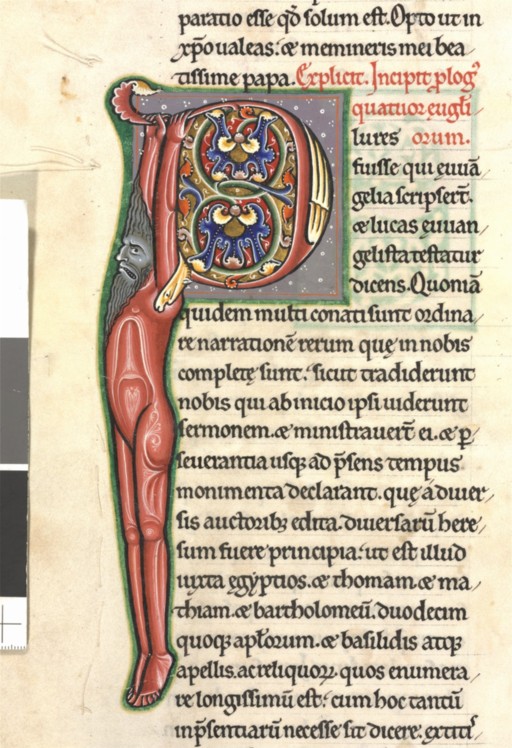 paratio esse qd̄ solum est. Opto ut in
xp̄o ualeas. & memineris mei bea
tissime papa. Explicit. Incipit p̄log⁹
quatuor eugl̄i
lures orum.
fuisse qui euuā
gelia scripser̄t.
& lucas euuan
gelista testatur
dicens. Quoniā
quidem multi conati sunt ordina
re narrationē rerum quę in nobis
completę sunt. sicut tradiderunt
nobis qui ab inicio ipsi uiderunt
sermonem. & ministrauer̄t ei. & p̱
seuerantia usq; ad p̄sens tempus
monumenta declarant. quę a diuer
sis auctorib; edita. diuersarū here
sum fuere principia. ut est illud
iuxta egyptios. & thomam. & ma
thiam. & bartholomeū. duodecim
quoq; apl̄orum. & basilidis atq;
apellis. ac reliquoꝝ. quos enumera
re longissimū est. cum hoc tantū
inp̄sentiarū necesse sit dicere. extitiſ